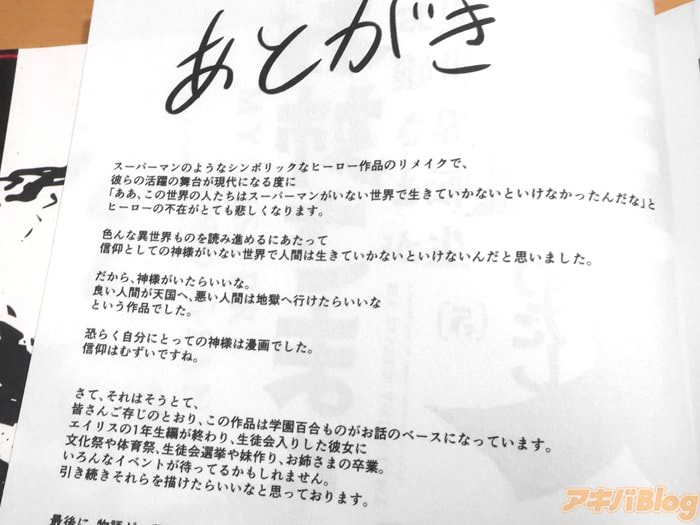 あとがき
スーパーマンのようなシンボリックなヒーロー作品のリメイクで、
彼らの活躍の舞台が現代になる度に
「ああ、この世界の人たちはスーパーマンがいない世界で生きていかないといけなかったんだな」と
ヒーローの不在がとても悲しくなります。
色んな異世界ものを読み進めるにあたって
信仰としての神様がいない世界で人間は生きていかないといけないんだと思いました。
だから、神様がいたらいいな。
良い人間が天国へ、悪い人間は地獄へ行けたらいいな
という作品でした。
恐らく自分にとっての神様は漫画でした。
信仰はむずいですね。
さて、それはそうとて、
皆さんご存じのとおり、この作品は学園百合ものがお話のベースになっています。
エイリスの1年生編が終わり、生徒会入りした彼女に
文化祭や体育祭、生徒会選挙や妹作り、お姉さまの卒業。
いろんなイベントが待ってるかもしれません。
引き続きそれらを描けたらいいなと思っております。
アキバBlog